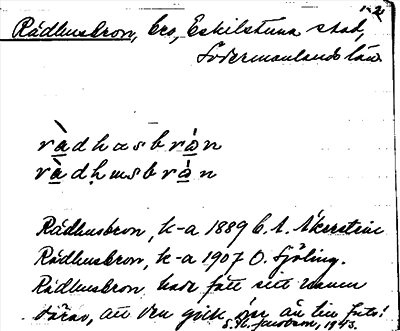 1-2
Rådhusbron, bro, Eskilstuna stad,
Södermanlands län
ràdhɑsbrån
ràdḥɯsbrán
Rådhusbron, k-a 1889 C. A. Åkerstein
Rådhusbron, k-a 1907 O. Sjöling.
Rådhusbron hade fått sitt namn
därav, att den gick över ån till
1943.